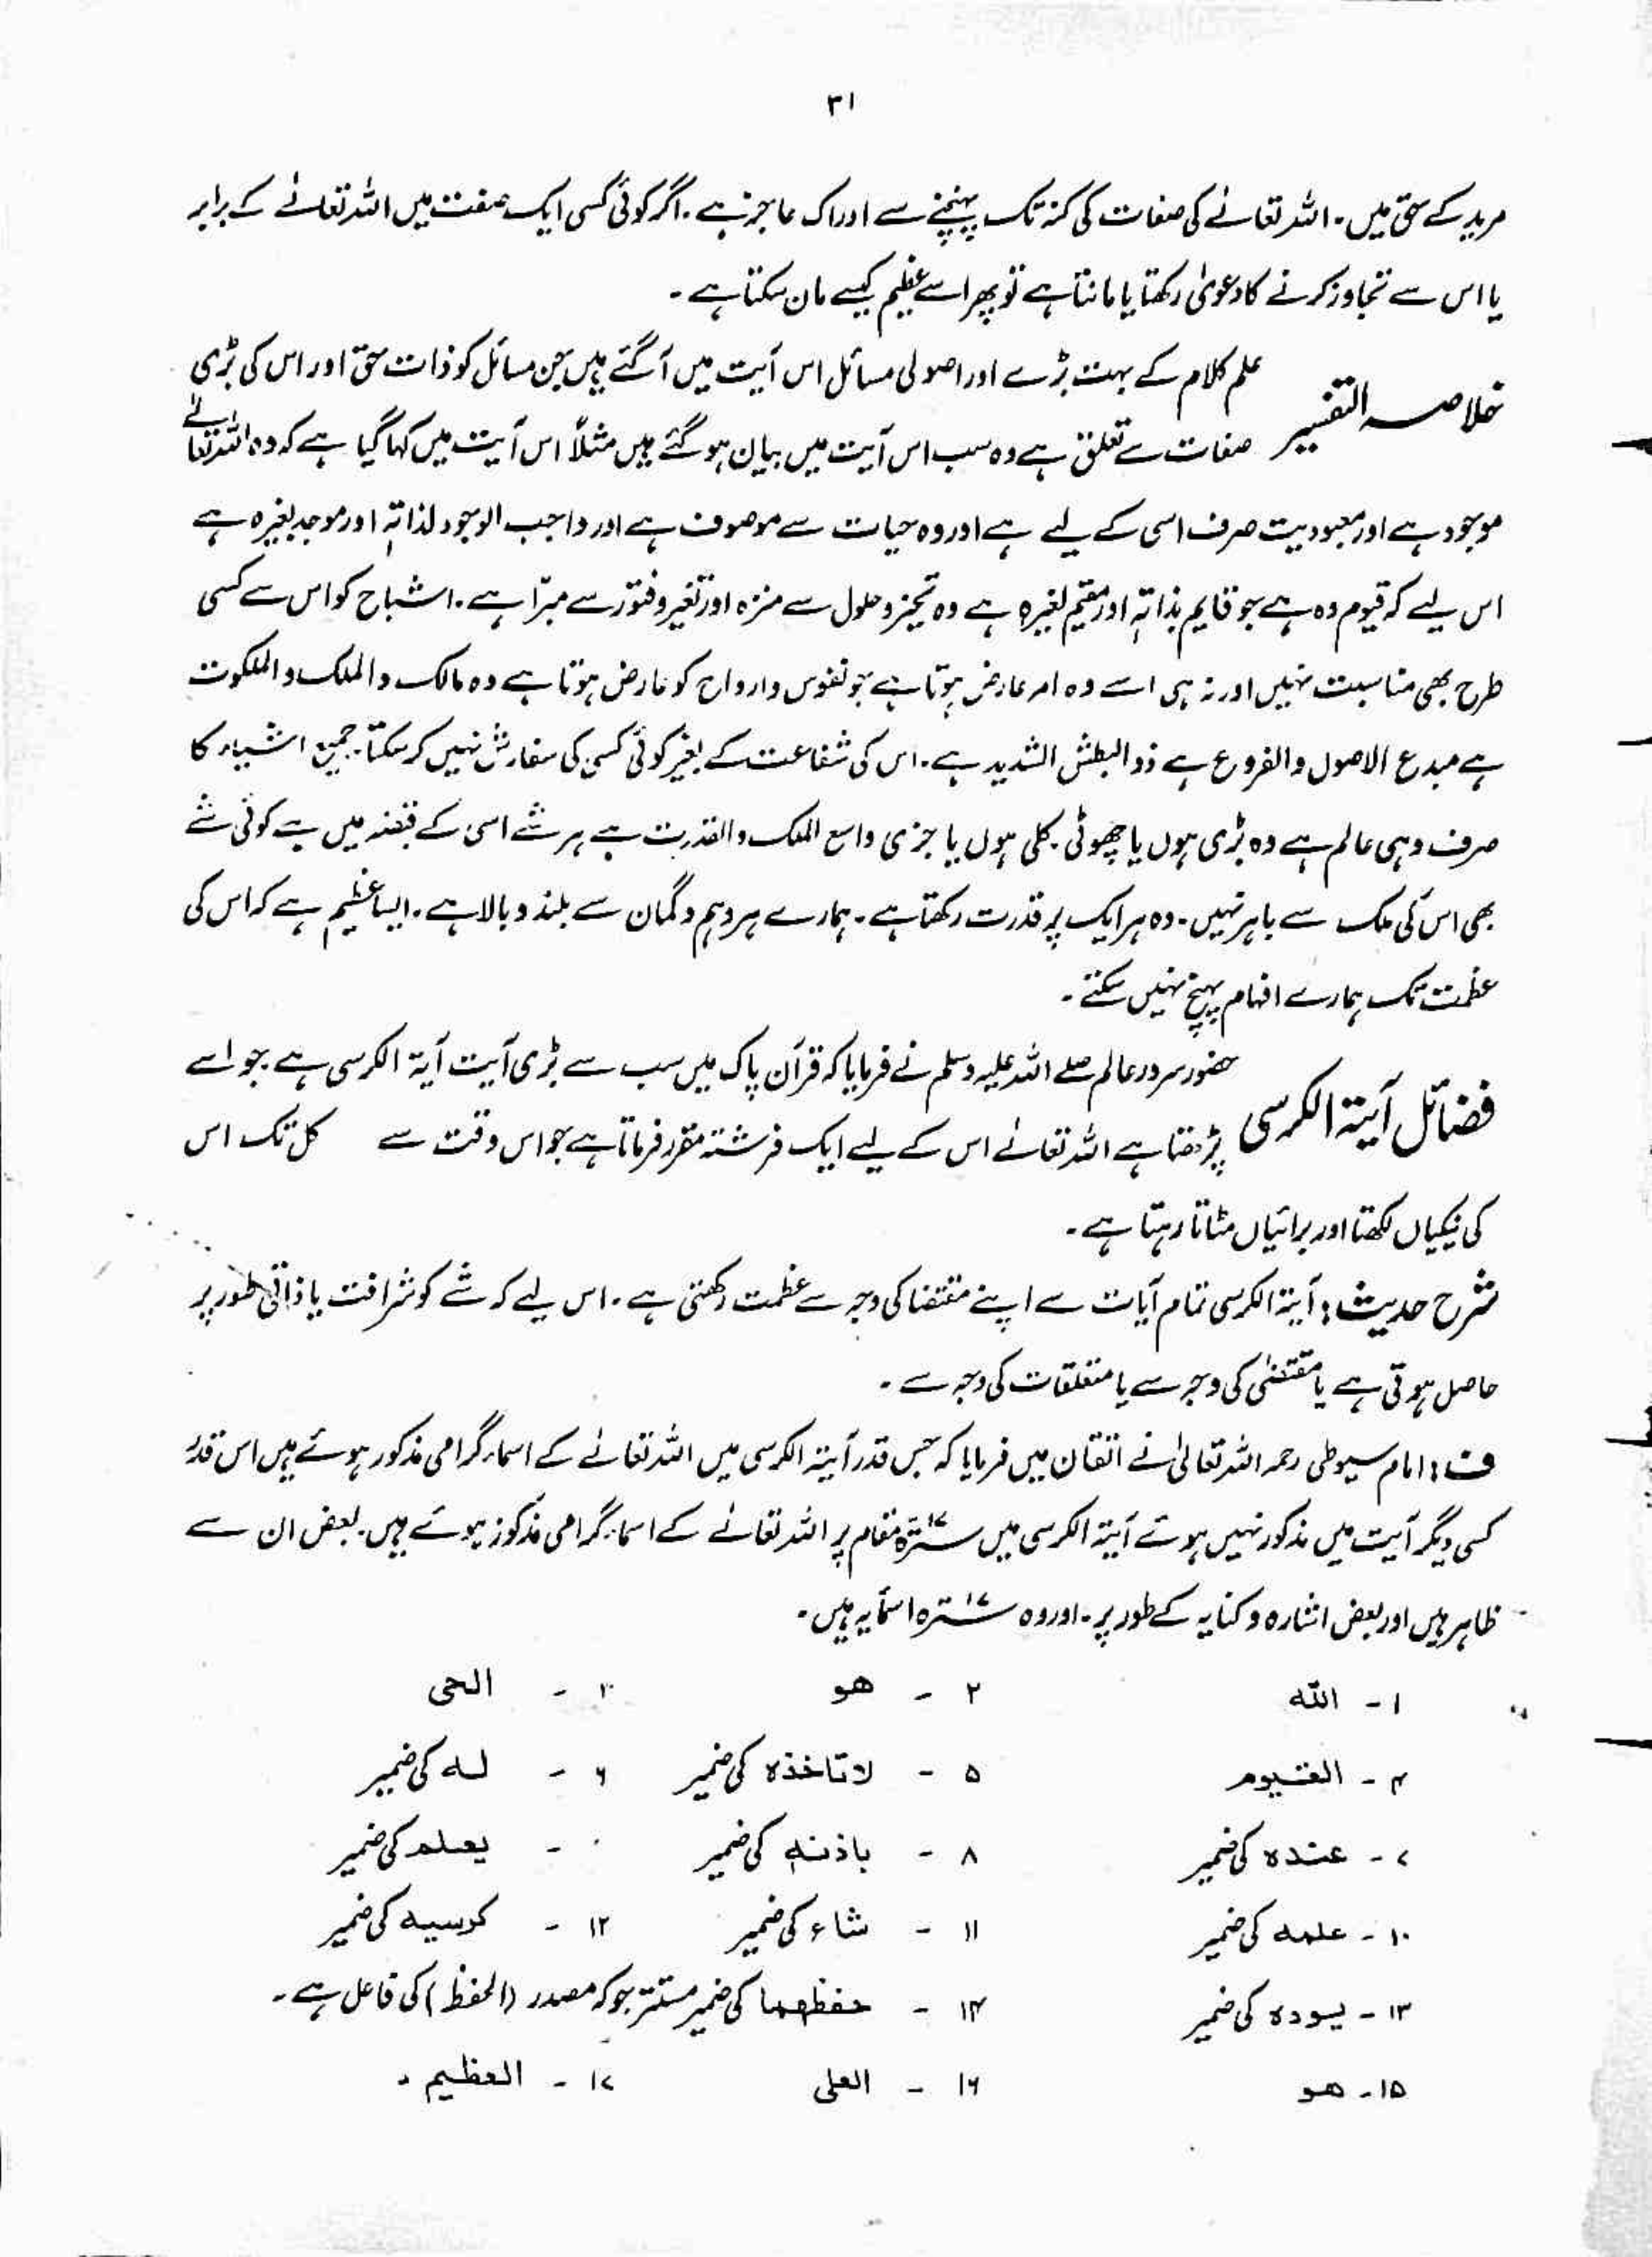 ۳۱
مرید کے حق میں۔ اللہ تعالےٰ کی صفات کی کنہ تک پہنچنے سے ادراک عاجز ہے۔ اگر کوئی کسی ایک صفت میں اللہ تعالےٰ کے برابر
یا اس سے تجاوز کرنے کا دعویٰ رکھتا یا مانتا ہے تو پھر اسے عظیم کیسے مان سکتا ہے۔
خلاصہ التفسیر علم کلام کے بہت بڑے اور اصولی مسائل اس آیت میں آگئے ہیں جن مسائل کو ذات حق اور اس کی بڑی
صفات سے تعلق ہے وہ سب اس آیت میں بیان ہوگئے ہیں مثلاً اس آیت میں کہا گیا ہے کہ وہ اللہ تعالےٰ
موجود ہے اور معبودیت صرف اسی کے لیے ہے اور وہ حیات سے موصوف ہے اور واجب الوجود لذاتہٖ اور موجد لغیرہ ہے
اس لیے کہ قیوم وہ ہے جو قایم بذاتہٖ اور مقیم لغیرہ ہے وہ تحیز و حلول سے منزہ اور تغیر و فتور سے مبرّا ہے۔ اشباح کو اس سے کسی
طرح بھی مناسبت نہیں اور نہ ہی اسے وہ امر عارض ہوتا ہے جو نفوس و ارواح کو عارض ہوتا ہے وہ مالک و الملک و الملکوت
ہے مبدع الاصول والفروع ہے ذو البطش الشدید ہے۔ اس کی شفاعت کے بغیر کوئی کسی کی سفارش نہیں کر سکتا۔ جمیع اشیاء کا
صرف وہی عالم ہے وہ بڑی ہوں یا چھوٹی۔ کلی ہوں یا جزی واسع الملک والقدرت ہے ہر شے اسی کے قبضہ میں ہے کوئی شے
بھی اس کی ملک سے باہر نہیں۔ وہ ہر ایک پر قدرت رکھتا ہے۔ ہمارے ہر وہم و گمان سے بلند و بالا ہے۔ ایسا عظیم ہے کہ اس کی
عظمت تک ہمارے افہام پہنچ نہیں سکتے۔
فضائل آیۃ الکرسی حضور سرور عالم صلے اللہ علیہ وسلم نے فرمایا کہ قرآن پاک میں سب سے بڑی آیت آیۃ الکرسی ہے جو اسے
پڑھتا ہے اللہ تعالےٰ اس کے لیے ایک فرشتہ مقرر فرماتا ہے جو اس وقت سے کل تک اس
کی نیکیاں لکھتا اور برائیاں مٹاتا رہتا ہے۔
شرح حدیث: آیۃ الکرسی تمام آیات سے اپنے مقتضا کی وجہ سے عظمت رکھتی ہے۔ اس لیے کہ شے کو شرافت یا ذاتی طور پر
حاصل ہوتی ہے یا مقتضیٰ کی وجہ سے یا متعلقات کی وجہ سے۔
ف: امام سیوطی رحمہ اللہ تعالیٰ نے اتقان میں فرمایا کہ جس قدر آیۃ الکرسی میں اللہ تعالےٰ کے اسماء گرامی مذکور ہوئے ہیں اس قدر
کسی دیگر آیت میں مذکور نہیں ہوئے آیۃ الکرسی میں سترہ۱۷ مقام پر اللہ تعالےٰ کے اسماء گرامی مذکور ہوئے ہیں۔ بعض ان سے
ظاہر ہیں اور بعض اشارہ و کنایہ کے طور پر۔ اور وہ سترہ۱۷ اسماء یہ ہیں۔
۱ - اللہ ۲ - ھو ۳ - الحی
۴ - القیوم ۵ - لاتاخذہ کی ضمیر ۶ - لہ کی ضمیر
۷ - عندہ کی ضمیر ۸ - باذنہٖ کی ضمیر - یعلم کی ضمیر
۱۰ - علمہ کی ضمیر ۱۱ - شاء کی ضمیر ۱۲ - کرسیہ کی ضمیر
۱۳ - یؤدہ کی ضمیر ۱۴ - حفظھما کی ضمیر مستتر جو کہ مصدر (الحفظ) کی فاعل ہے۔
۱۵ - ھو ۱۶ - العلی ۱۷ - العظیم۔